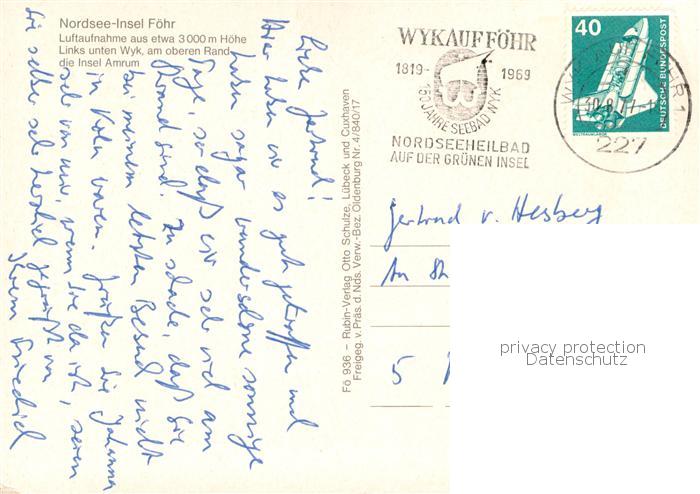 Nordsee-Insel Föhr
Luftaufnahme aus etwa 3000 m Höhe
Links unten Wyk, am oberen Rand
die Insel Amrum
Liebe Gertrud!
Hier haben wir es gut getroffen und
haben sogar wunderschöne sonnige
Tage, so daß wir sehr viel am
Strand sind. Zu schade, daß Sie
bei meinem letzten Besuch nicht
in Köln waren. Grüßen Sie Johanna
sehr von mir, wenn Sie da ist, seien
Sie selbst sehr herzlich gegrüßt von
Ihrem Friedrich
Fö 936 – Rubin-Verlag Otto Schulze, Lübeck und Cuxhaven
Freigeg. v. Präs. d. Nds. Verw.-Bez. Oldenburg Nr. 4/840/17
WYK AUF FÖHR
1819- 1969
150 JAHRE SEEBAD WYK
NORDSEEHEILBAD
AUF DER GRÜNEN INSEL
40
DEUTSCHE BUNDESPOST
WELTRAUMLABOR
30.8.77
227
Gertrud v. Hesberg
An
5
privacy protection
Datenschutz